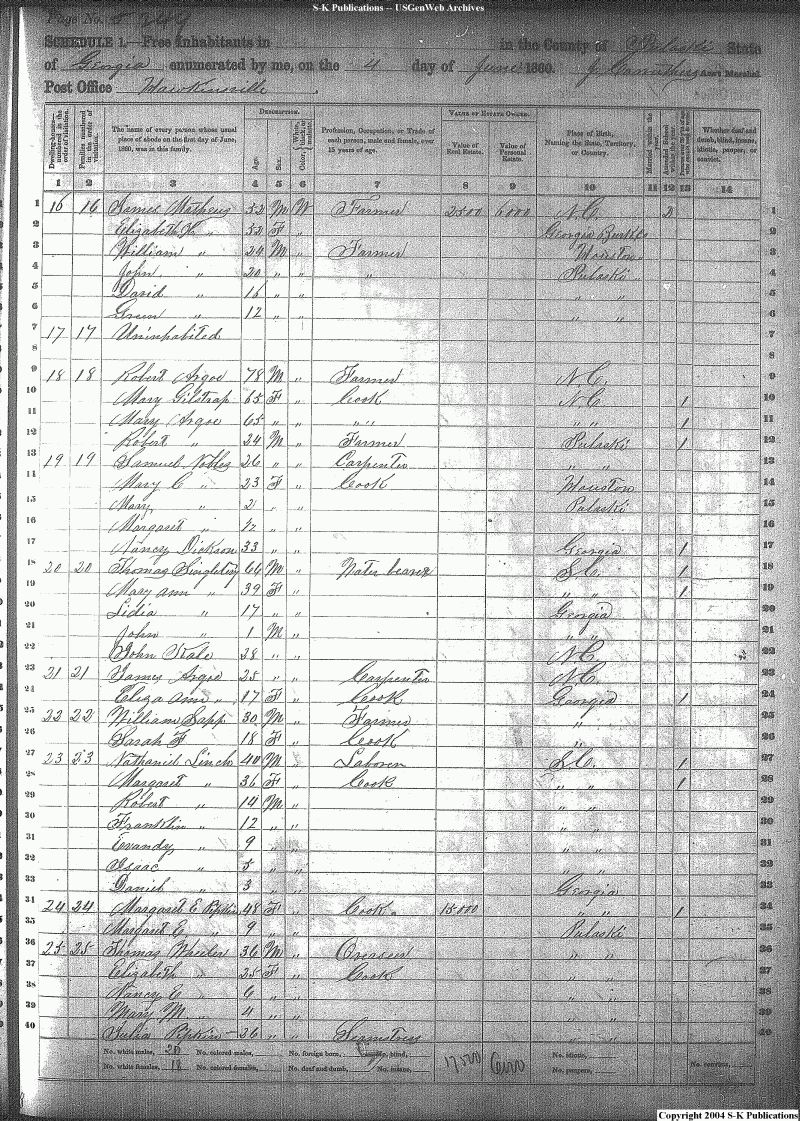 S-K Publications -- USGenWeb Archives
Page No. 5
SCHEDULE 1.—Free Inhabitants in in the County of Pulaski State
of Georgia enumerated by me, on the 4 day of June 1860. J Carruthers Ass't Marshal.
Post Office Hawkinsville.
Dwelling-houses— numbered in the order of visitation.
Families numbered in the order of visitation.
The name of every person whose usual place of abode on the first day of June, 1860, was in this family.
DESCRIPTION.
Age.
Sex.
Color, White, black, or mulatto.
Profession, Occupation, or Trade of each person, male and female, over 15 years of age.
VALUE OF ESTATE OWNED.
Value of Real Estate.
Value of Personal Estate.
Place of Birth, Naming the State, Territory, or Country.
Married within the year.
Attended School within the year.
Whether deaf and dumb, blind, insane, idiotic, pauper, or convict.
1 2 3 4 5 6 7 8 9 10 11 12 13 14
1 16 16 James Mathews 52 M W Farmer 2500 6000 N.C. 2 1
2 Elizabeth " 52 F " Georgia 2
3 William " 24 M " Farmer Houston 3
4 John " 20 " " " Pulaski 4
5 David " 16 " " " " 5
6 Green " 12 " " " " 6
7 17 17 Uninhabited 7
8 8
9 18 18 Robert Argoe 78 M " Farmer N.C. 9
10 Mary Gilstrap 65 F " Cook N.C. 1 10
11 Mary Argoe 65 " " " " " " 1 11
12 Robert " 24 M " Farmer Pulaski 1 12
13 19 19 Samuel Nobles 26 " " Carpenter " " 13
11 Mary C " 23 F " Cook Houston 14
15 Mary " 2 " " Pulaski 15
16 Margaret " " " 16
17 Nancy Dickson 33 " " Georgia 1 17
18 20 20 Thomas Singletery 64 M " Water bearer S.C. 1 18
19 Mary ann " 39 F " " " 1 19
20 Lidia " 17 " " Georgia 20
21 John " 1 M " " " 21
22 John 28 " " N.C. 22
23 21 21 Argoe 25 " " Carpenter N.C. 23
24 Eliza Ann " 17 F " Cook Georgia 1 24
25 22 22 William Sapp 30 M " Farmer " 25
26 Sarah F 18 F " Cook " 26
27 23 23 Nathaniel Linch 40 M " Laborer S.C. 1 27
28 Margaret " 36 F " Cook " " 1 28
29 Robert " 14 M " " " 29
30 Franklin " 12 " " " " 30
31 Evandy " 9 " " " " 31
32 Isaac " 5 " " " " 32
33 Daniel " 3 " " Georgia 33
31 24 24 Margaret E Pipkin 48 F " Cook 15000 " " 1 34
35 Margaret C " 9 " " Pulaski 35
36 25 25 Thomas Wheeler 36 M " Overseer " " 36
37 Elizabeth " 25 F " Cook " " 37
38 Nancy E " 6 " " " " 38
39 Mary M " 4 " " " " 39
40 Julia Pipkin 26 " " Seamstress 40
No. white males, 20 No. colored males, No. foreign born, blind, 17500 6000 No. idiotic,
No. white females, 18 No. colored females, No. deaf and dumb, No. insane, No. paupers, No. convicts,
Copyright 2004 S-K Publications